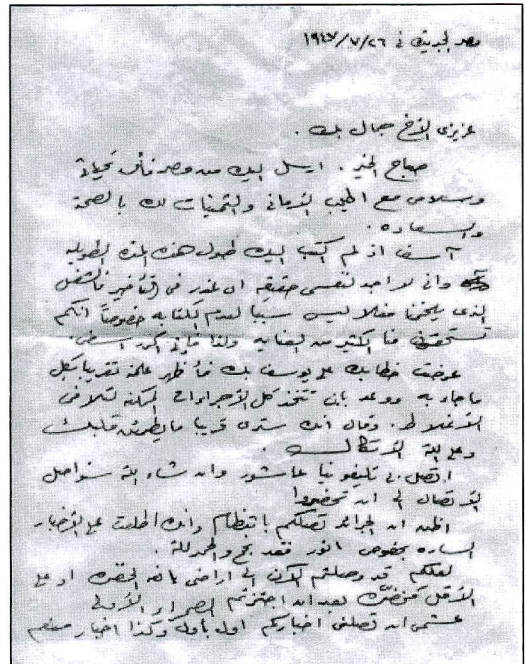 مصر الجديدة في ٢٦/٧/١٩٤٧
عزيزى الأخ جمال بك .
صباح الخير . ارسل اليك من مصر فائق تحياتى
وسلامى مع اطيب الأمانى والتمنيات لك بالصحة
والسعادة .
آسف اذ لم اكتب اليك طول هذه المدة الطويله
وانى لا اجد لنفسى حقيقه اى عذر فى التأخير فالشغل
الذى يلخمنا فعلا ليس سببا لعدم الكتابه خصوصاً انكم
تستحقون منا الكثير من العنايه ولذا فإنى اكرر اسفى .
عرضت خطابك على يوسف بك فأظهر علمه تقريبا بكل
ما جاء به ووعد بان تتخذ كل الأجراءات الممكنه لتلافى
الأغلاط . وقال انك سترى قريبا ما يطمئن قلبك
وعلى الله الأتكال .
اتصل بى تليفونيا عاشور وان شاء الله سنواصل
الأتصال الى ان تحضروا
اظن ان الجرائد تصلكم بانتظام وانك اطلعت على الأخبار
الساره بخصوص انور فقد نجح والحمد لله .
لعلكم قد وصلتم الآن الى اراضى يانعه الخضره او على
الأقل مخضرّه بعد ان اجتزتم الصحراء الأولى
عشمى ان تصلنى اخباركم اول بأول وكذا اخبار